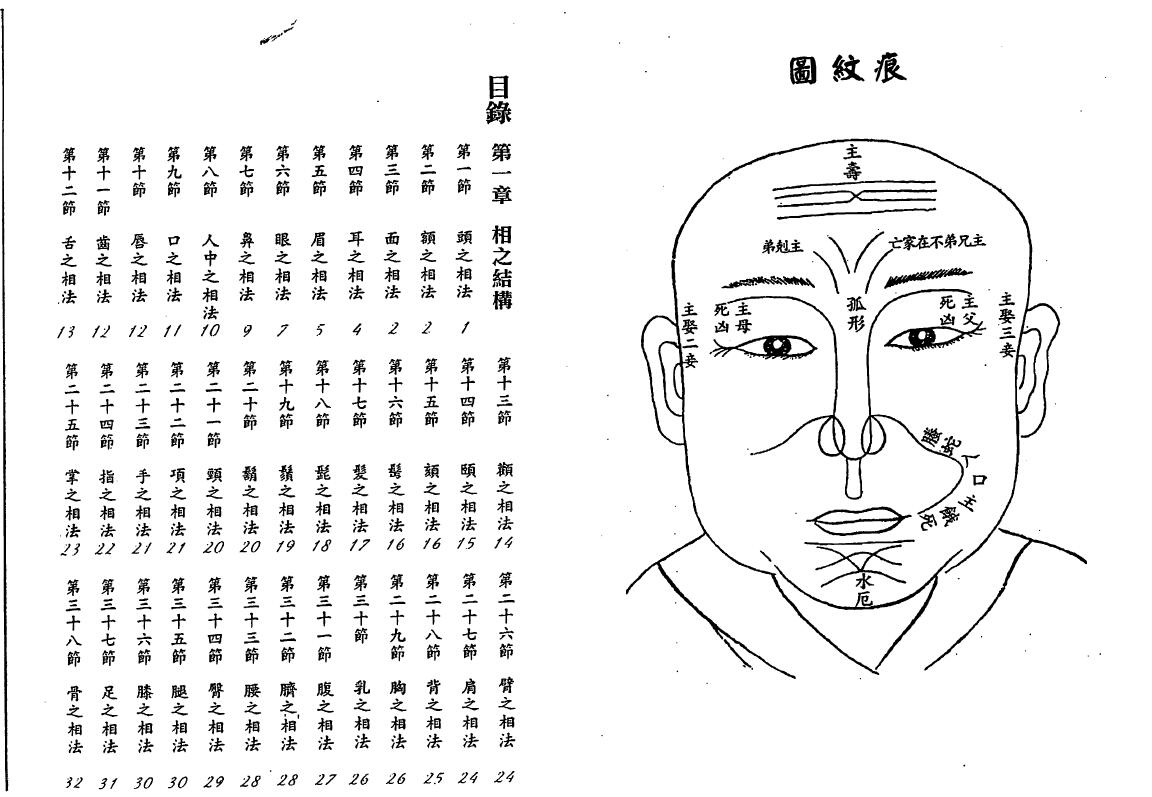 痕紋圖
主壽
主兄弟不在家亡
主剋弟
孤形
主娶三妾
主父
死凶
主母
死凶
主娶二妾
螣蛇入口主餓死
水厄
目錄
第一章 相之結構
第一節 頭之相法 1
第二節 額之相法 2
第三節 面之相法 2
第四節 耳之相法 4
第五節 眉之相法 5
第六節 眼之相法 7
第七節 鼻之相法 9
第八節 人中之相法 10
第九節 口之相法 11
第十節 唇之相法 12
第十一節 齒之相法 12
第十二節 舌之相法 13
第十三節 顴之相法 14
第十四節 頤之相法 15
第十五節 之相法 16
第十六節 髩之相法 16
第十七節 髮之相法 17
第十八節 髭之相法 18
第十九節 鬚之相法 19
第二十節 鬍之相法 20
第二十一節 頸之相法 20
第二十二節 項之相法 21
第二十三節 手之相法 21
第二十四節 指之相法 22
第二十五節 掌之相法 23
第二十六節 臂之相法 24
第二十七節 肩之相法 24
第二十八節 背之相法 25
第二十九節 胸之相法 26
第三十節 乳之相法 26
第三十一節 腹之相法 27
第三十二節 臍之相法 28
第三十三節 腰之相法 28
第三十四節 臀之相法 29
第三十五節 腿之相法 30
第三十六節 膝之相法 30
第三十七節 足之相法 31
第三十八節 骨之相法 32